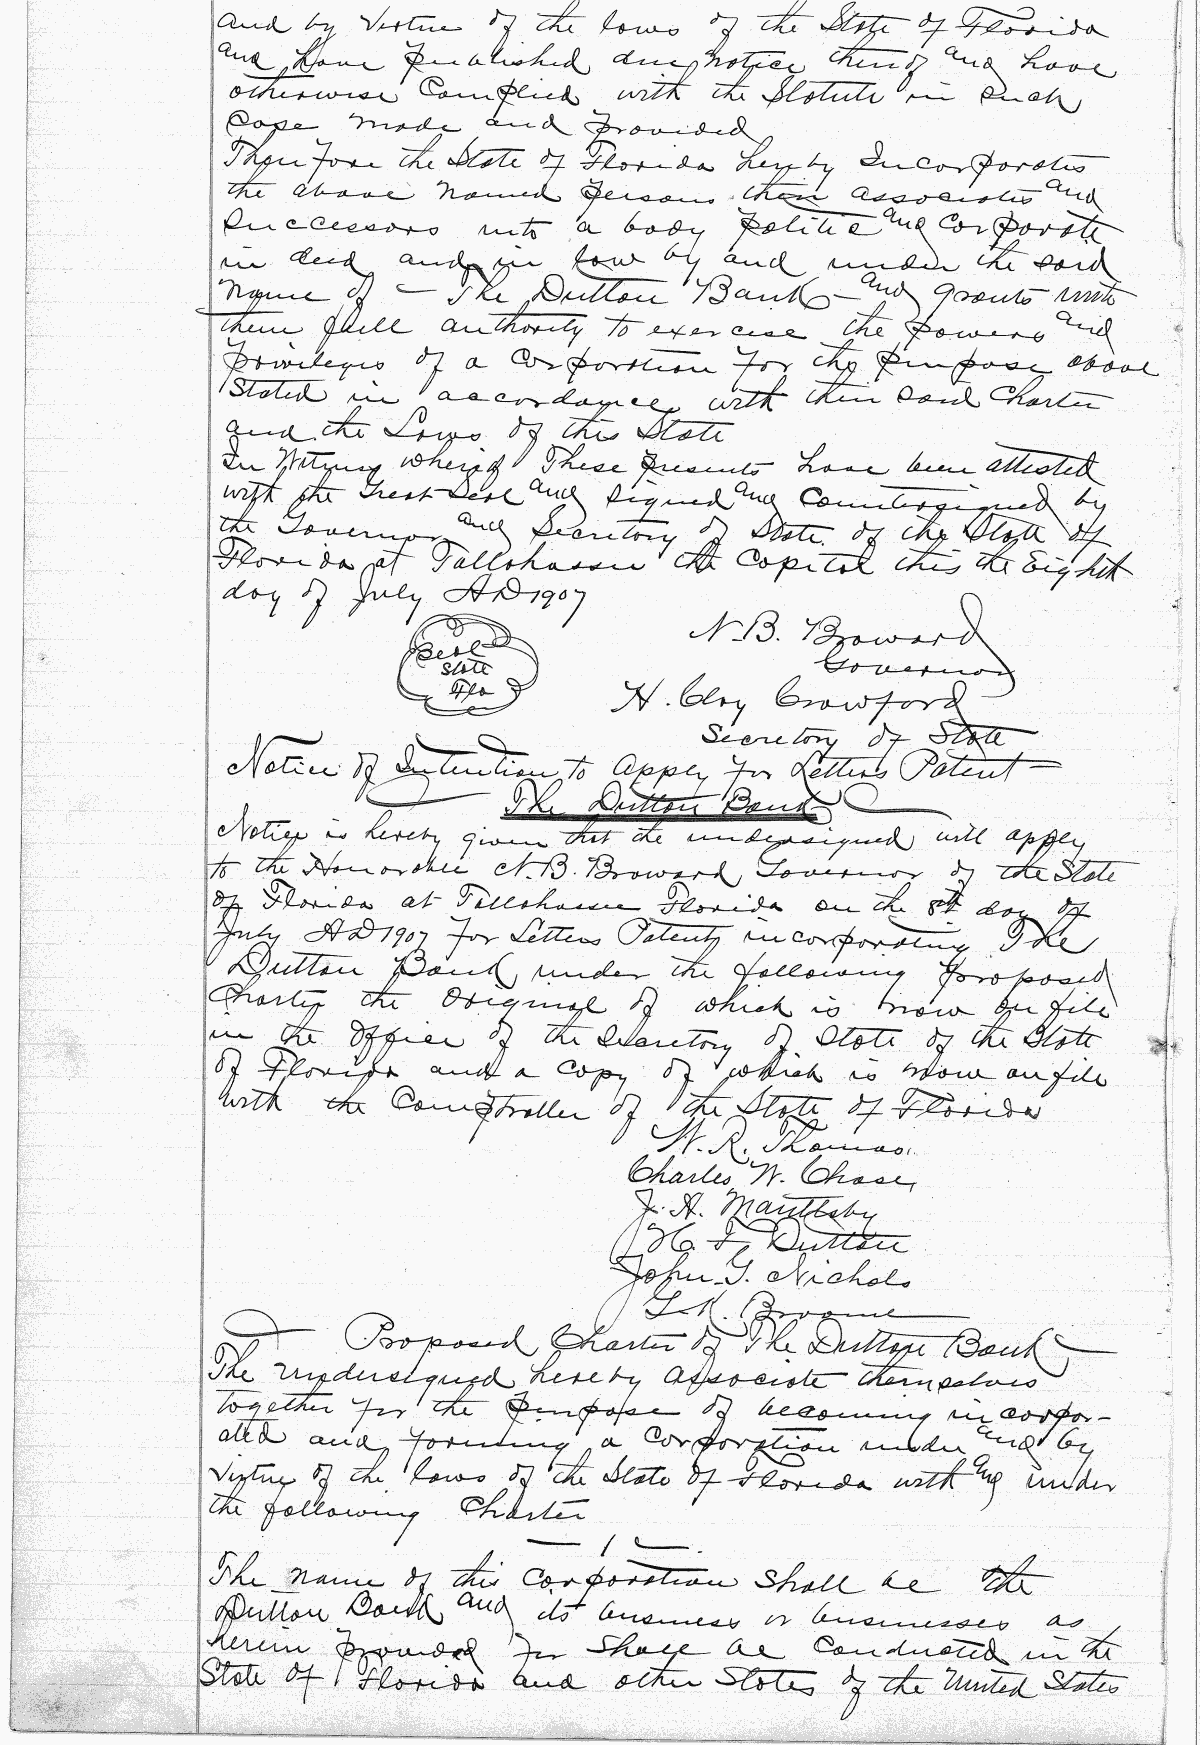 and by Virtue of the laws of the State of Florida
and have published due notice thereof and have
otherwise Complied with the Statute in such
Case made and provided
Therefore the State of Florida hereby Incorporates
the above named persons their associates and
Successors into a body politic and corporate
in deed and in law by and under the said
name of — The Dutton Bank — and grants unto
them full authority to exercise the powers and
privileges of a corporation for the purpose above
Stated in accordance with their said Charter
and the Laws of this State
In Witness whereof These presents have been attested
with the Great Seal and Signed and Countersigned by
the Governor and Secretary of State of the State of
Florida at Tallahassee the Capital this the Eighth
day of July AD 1907
N. B. Broward
Governor
Seal
State
Fla
H. Clay Crawford
Secretary of State
Notice of Intention to Apply for Letters Patent
The Dutton Bank
Notice is hereby given that the undersigned will apply
to the Honorable N. B. Broward Governor of the State
of Florida at Tallahassee Florida on the 8th day of
July AD 1907 for Letters Patent incorporating The
Dutton Bank under the following proposed
Charter the original of which is now on file
in the office of the Secretary of State of the State
of Florida and a copy of which is now on file
with the Comptroller of the State of Florida
W. R. Thomas
Charles W. Chase
J. A. Maultsby
H. F. Dutton
John G. Nichols
Broome
Proposed Charter of The Dutton Bank
The undersigned hereby associate themselves
together for the purpose of becoming incorpor-
ated and forming a corporation under and by
virtue of the laws of the State of Florida with and under
the following Charter
— 1 —
The name of this Corporation Shall be The
Dutton Bank and its business or businesses as
herein provided for Shall be Conducted in the
State of Florida and other States of the United States